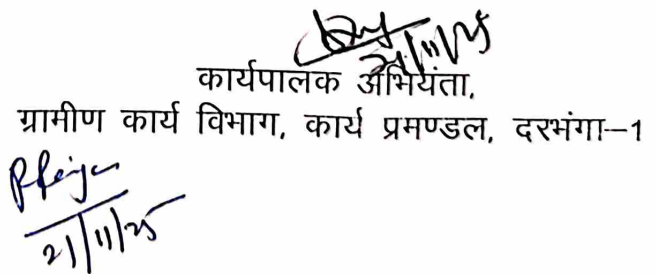 21/11/25
कार्यपालक अभियंता,
ग्रामीण कार्य विभाग, कार्य प्रमण्डल, दरभंगा–1
21/11/25